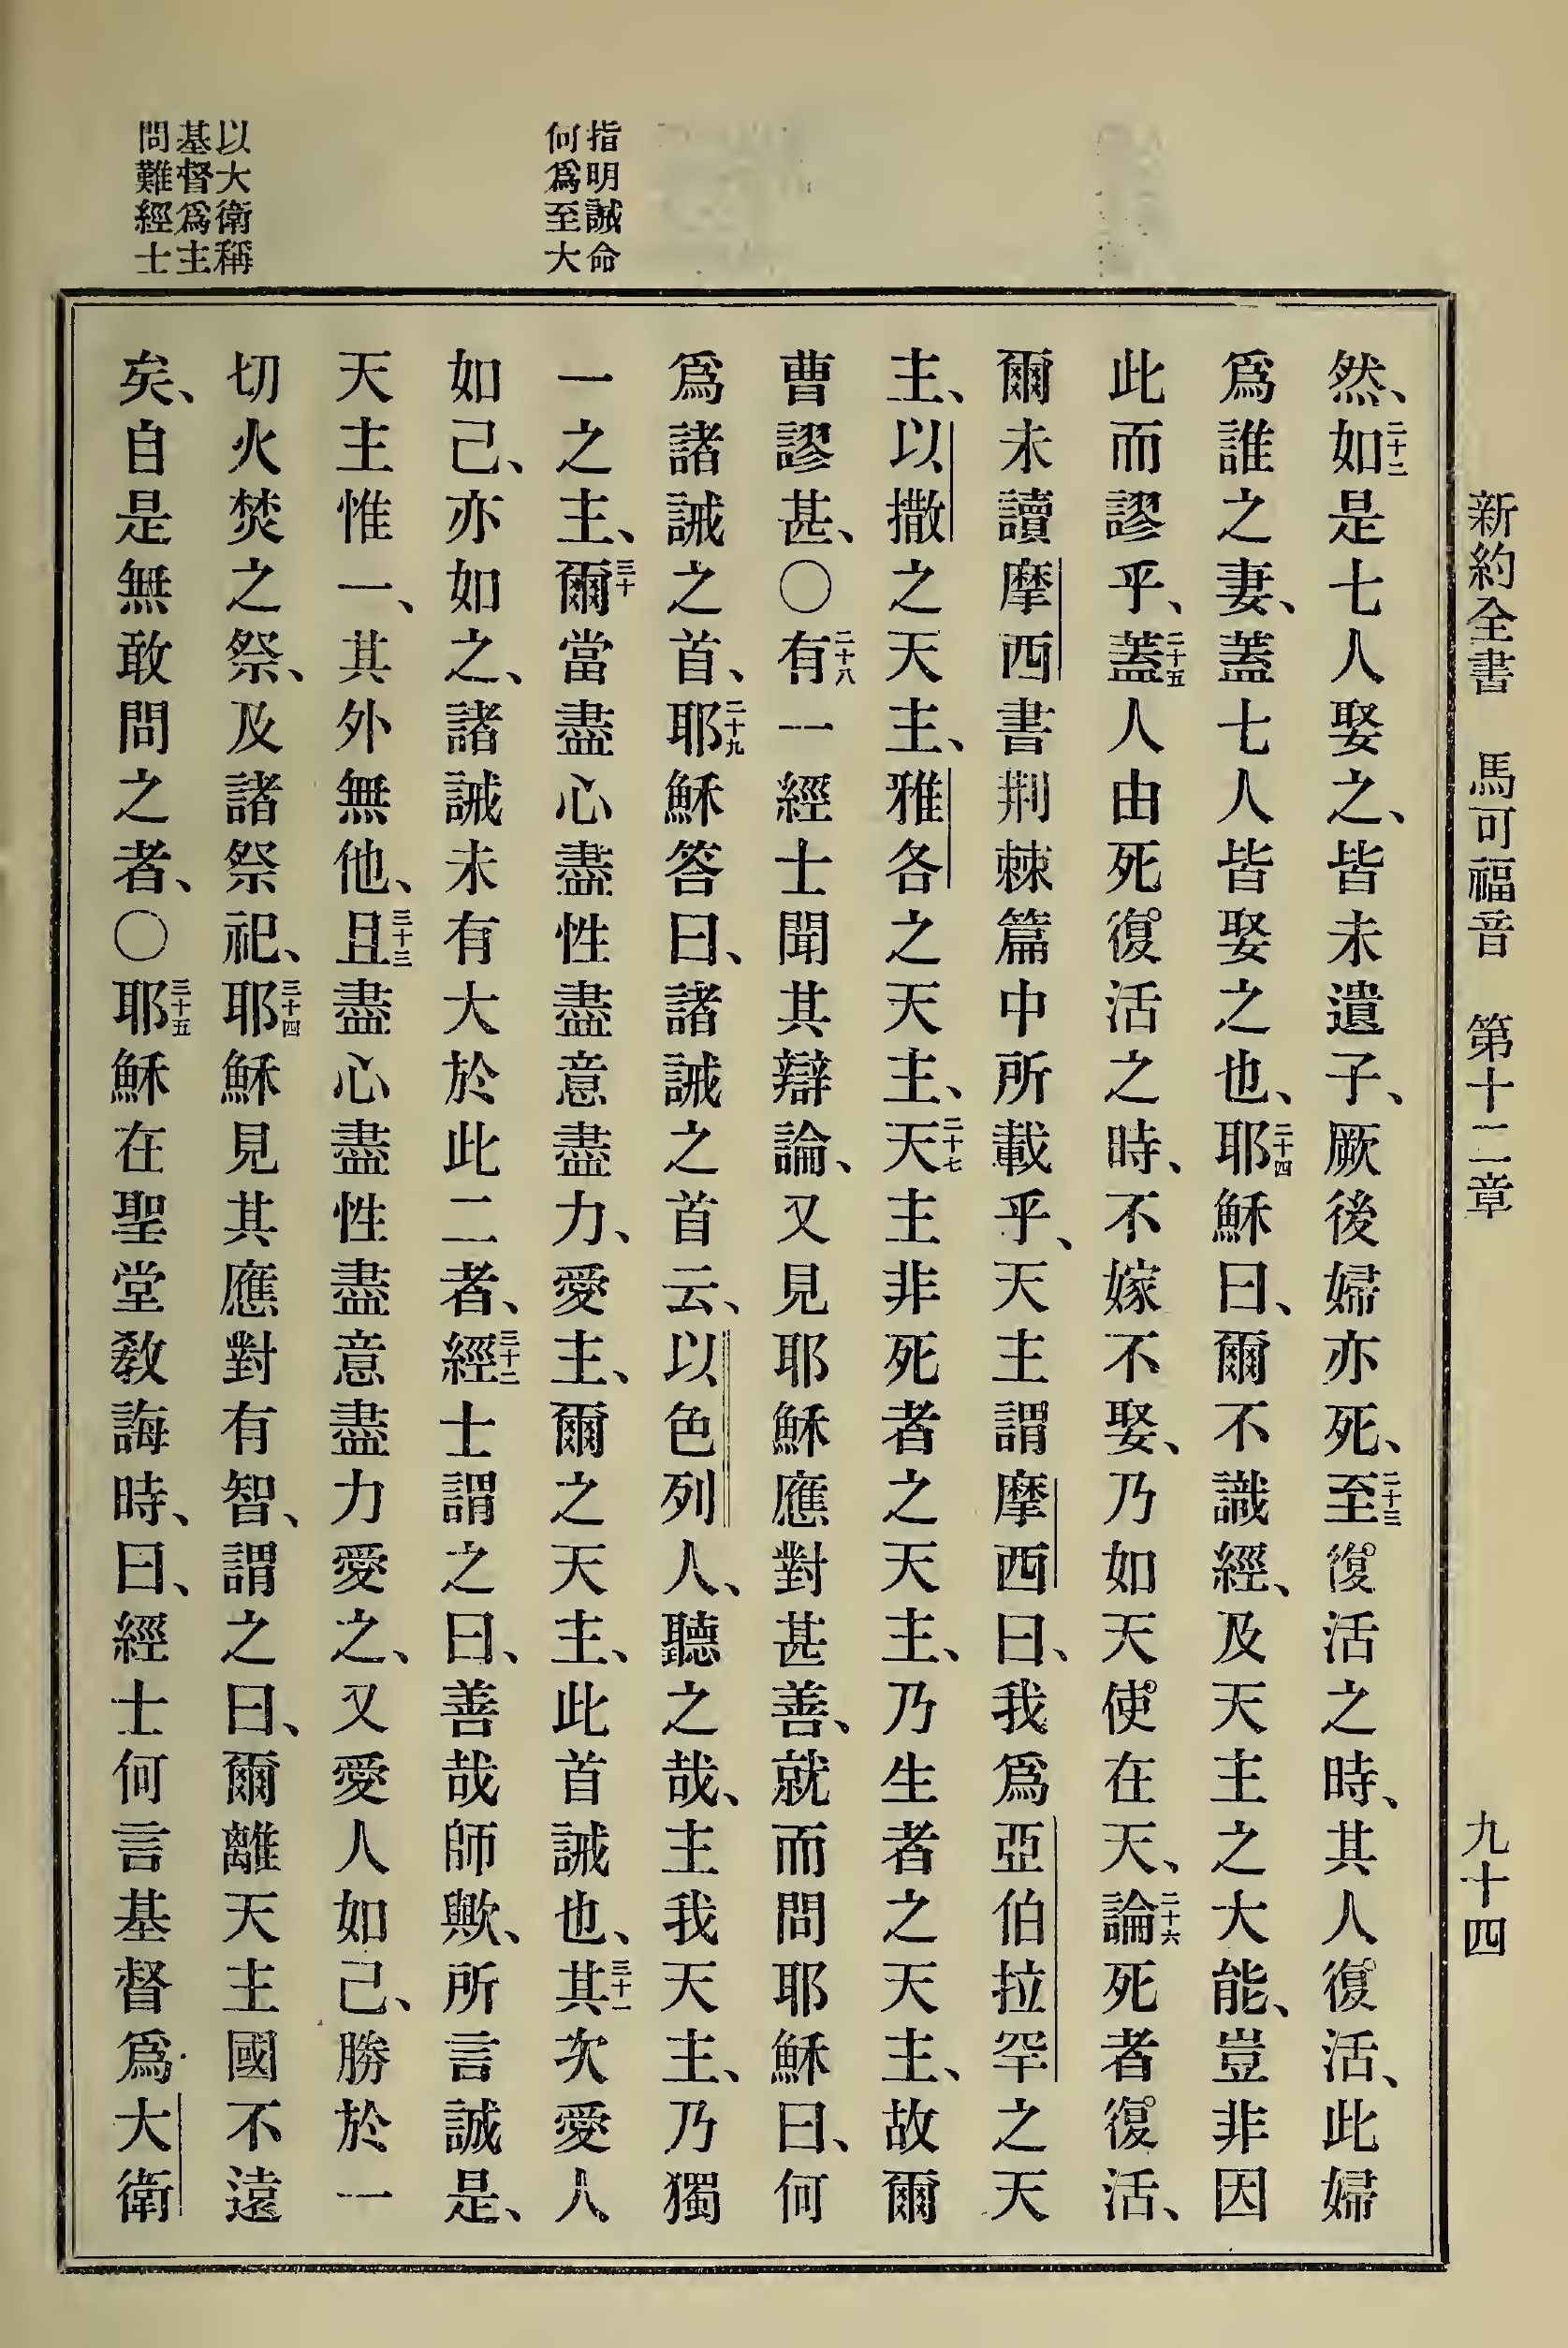 新約全書 馬可福音 第十二章 九十四
指明誡命
何爲至大
以大衛稱
基督爲主
問難經士
然、二十二如是七人娶之、皆未遺子、厥後婦亦死、二十三至復活之時、其人復活、此婦
爲誰之妻、蓋七人皆娶之也、二十四耶穌曰、爾不識經、及天主之大能、豈非因
此而謬乎、二十五蓋人由死復活之時、不嫁不娶、乃如天使在天、二十六論死者復活、
爾未讀摩西書荆棘篇中所載乎、天主謂摩西曰、我爲亞伯拉罕之天
主、以撒之天主、雅各之天主、二十七天主非死者之天主、乃生者之天主、故爾
曹謬甚、〇二十八有一經士聞其辯論、又見耶穌應對甚善、就而問耶穌曰、何
爲諸誡之首、二十九耶穌答曰、諸誡之首云、以色列人、聽之哉、主我天主、乃獨
一之主、三十爾當盡心盡性盡意盡力、愛主、爾之天主、此首誡也、三十一其次愛人
如己、亦如之、諸誡未有大於此二者、三十二經士謂之曰、善哉師歟、所言誠是、
天主惟一、其外無他、三十三且盡心盡性盡意盡力愛之、又愛人如己、勝於一
切火焚之祭、及諸祭祀、三十四耶穌見其應對有智、謂之曰、爾離天主國不遠
矣、自是無敢問之者、〇三十五耶穌在聖堂敎誨時、曰、經士何言基督爲大衛